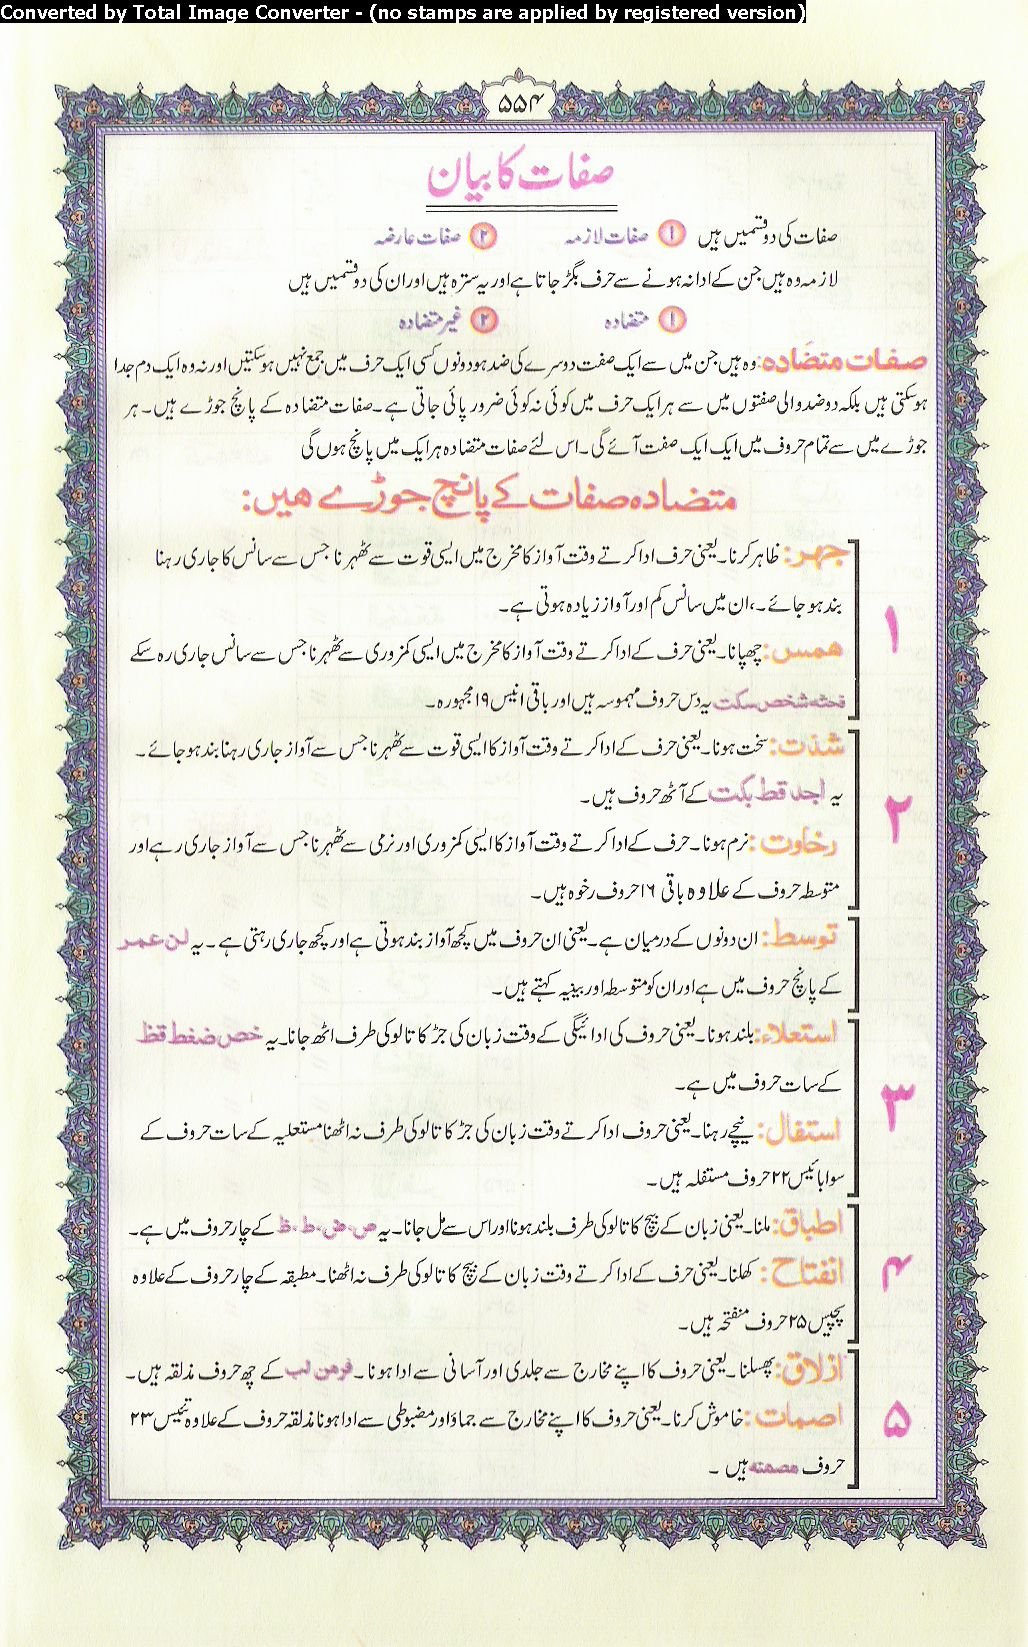 Converted by Total Image Converter - (no stamps are applied by registered version)
۵۵۴
صفات کا بیان
صفات کی دو قسمیں ہیں ۱ صفات لازمہ ۲ صفات عارضہ
لازمہ وہ ہیں جن کے ادا نہ ہونے سے حرف بگڑ جاتا ہے اور یہ سترہ ہیں اور ان کی دو قسمیں ہیں
۱ متضادہ ۲ غیر متضادہ
صفات متضادہ: وہ ہیں جن میں سے ایک صفت دوسرے کی ضد ہو دونوں کسی ایک حرف میں جمع نہیں ہو سکتیں اور نہ وہ ایک دم جدا
ہو سکتی ہیں بلکہ دو ضد والی صفتوں میں سے ہر ایک حرف میں کوئی نہ کوئی ضرور پائی جاتی ہے۔ صفات متضادہ کے پانچ جوڑے ہیں۔ ہر
جوڑے میں سے تمام حروف میں ایک ایک صفت آئے گی۔ اس لئے صفات متضادہ ہر ایک میں پانچ ہوں گی
متضادہ صفات کے پانچ جوڑے ھیں:
۱
جہر: ظاہر کرنا۔ یعنی حرف ادا کرتے وقت آواز کا مخرج میں ایسی قوت سے ٹھہرنا جس سے سانس کا جاری رہنا
بند ہو جائے۔، ان میں سانس کم اور آواز زیادہ ہوتی ہے۔
ھمس: چھپانا۔ یعنی حرف کے ادا کرتے وقت آواز کا مخرج میں ایسی کمزوری سے ٹھہرنا جس سے سانس جاری رہ سکے
فحثہ شخص سکت یہ دس حروف مہموسہ ہیں اور باقی انیس ۱۹ مجہورہ۔
۲
شدّت: سخت ہونا۔ یعنی حرف کے ادا کرتے وقت آواز کا ایسی قوت سے ٹھہرنا جس سے آواز جاری رہنا بند ہو جائے۔
یہ اجد قط بکت کے آٹھ حروف ہیں۔
رخاوت: نرم ہونا۔ حرف کے ادا کرتے وقت آواز کا ایسی کمزوری اور نرمی سے ٹھہرنا جس سے آواز جاری رہے اور
متوسطہ حروف کے علاوہ باقی ۱۶ حروف رخوہ ہیں۔
توسط: ان دونوں کے درمیان ہے۔ یعنی ان حروف میں کچھ آواز بند ہوتی ہے اور کچھ جاری رہتی ہے۔ یہ لن عمر
کے پانچ حروف میں ہے اور ان کو متوسطہ اور بینیہ کہتے ہیں۔
۳
استعلاء: بلند ہونا۔ یعنی حروف کی ادائیگی کے وقت زبان کی جڑ کا تالو کی طرف اٹھ جانا۔ یہ خص ضغط قظ
کے سات حروف میں ہے۔
استفال: نیچے رہنا۔ یعنی حروف ادا کرتے وقت زبان کی جڑ کا تالو کی طرف نہ اٹھنا مستعلیہ کے سات حروف کے
سوا بائیس ۲۲ حروف مستفلہ ہیں۔
۴
اطباق: ملنا۔ یعنی زبان کے بیچ کا تالو کی طرف بلند ہونا اور اس سے مل جانا۔ یہ ص۔ض۔ط۔ظ کے چار حروف میں ہے۔
انفتاح: کھلنا۔ یعنی حرف کے ادا کرتے وقت زبان کے بیچ کا تالو کی طرف نہ اٹھنا۔ مطبقہ کے چار حروف کے علاوہ
پچیس ۲۵ حروف منفتحہ ہیں۔
۵
ازلاق: پھسلنا۔ یعنی حروف کا اپنے مخارج سے جلدی اور آسانی سے ادا ہونا۔ فرمن لب کے چھ حروف مذلقہ ہیں۔
اصمات: خاموش کرنا۔ یعنی حروف کا اپنے مخارج سے جماؤ اور مضبوطی سے ادا ہونا مذلقہ حروف کے علاوہ تئیس ۲۳
حروف مصمتہ ہیں۔